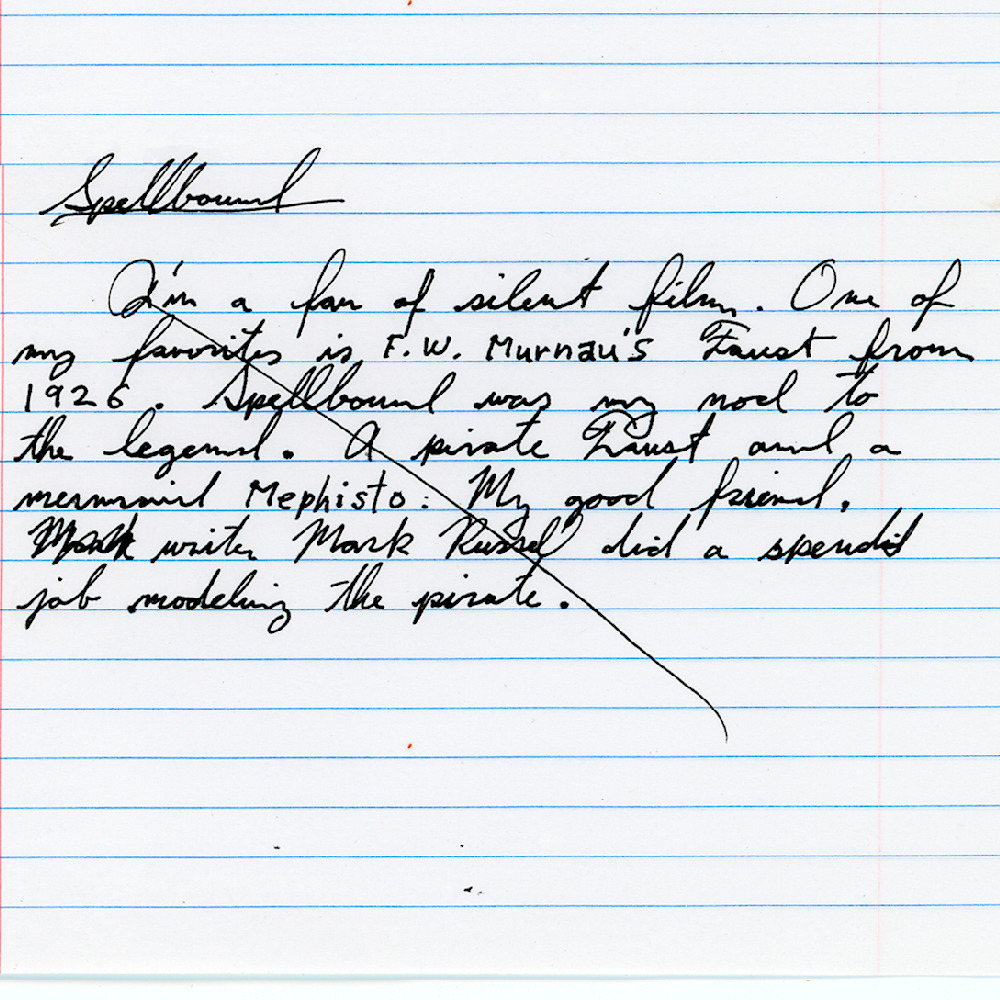 Spellbound
I'm a fan of silent film. One of
my favorites is F.W. Murnau's Faust from
1926. Spellbound was my nod to
the legend. A pirate Faust and a
mermaid Mephisto. My good friend,
writer Mark Russel did a spendid
job modeling the pirate.